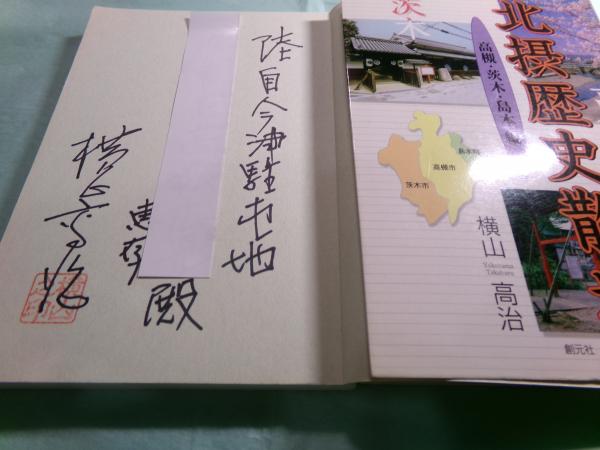 陸自今津駐屯地
恵存
殿
横山高治
茨木
北摂歴史散
高槻・茨木・島本編
島本町
高槻市
茨木市
横山
高治
Yokoyama
Takaharu
創元社